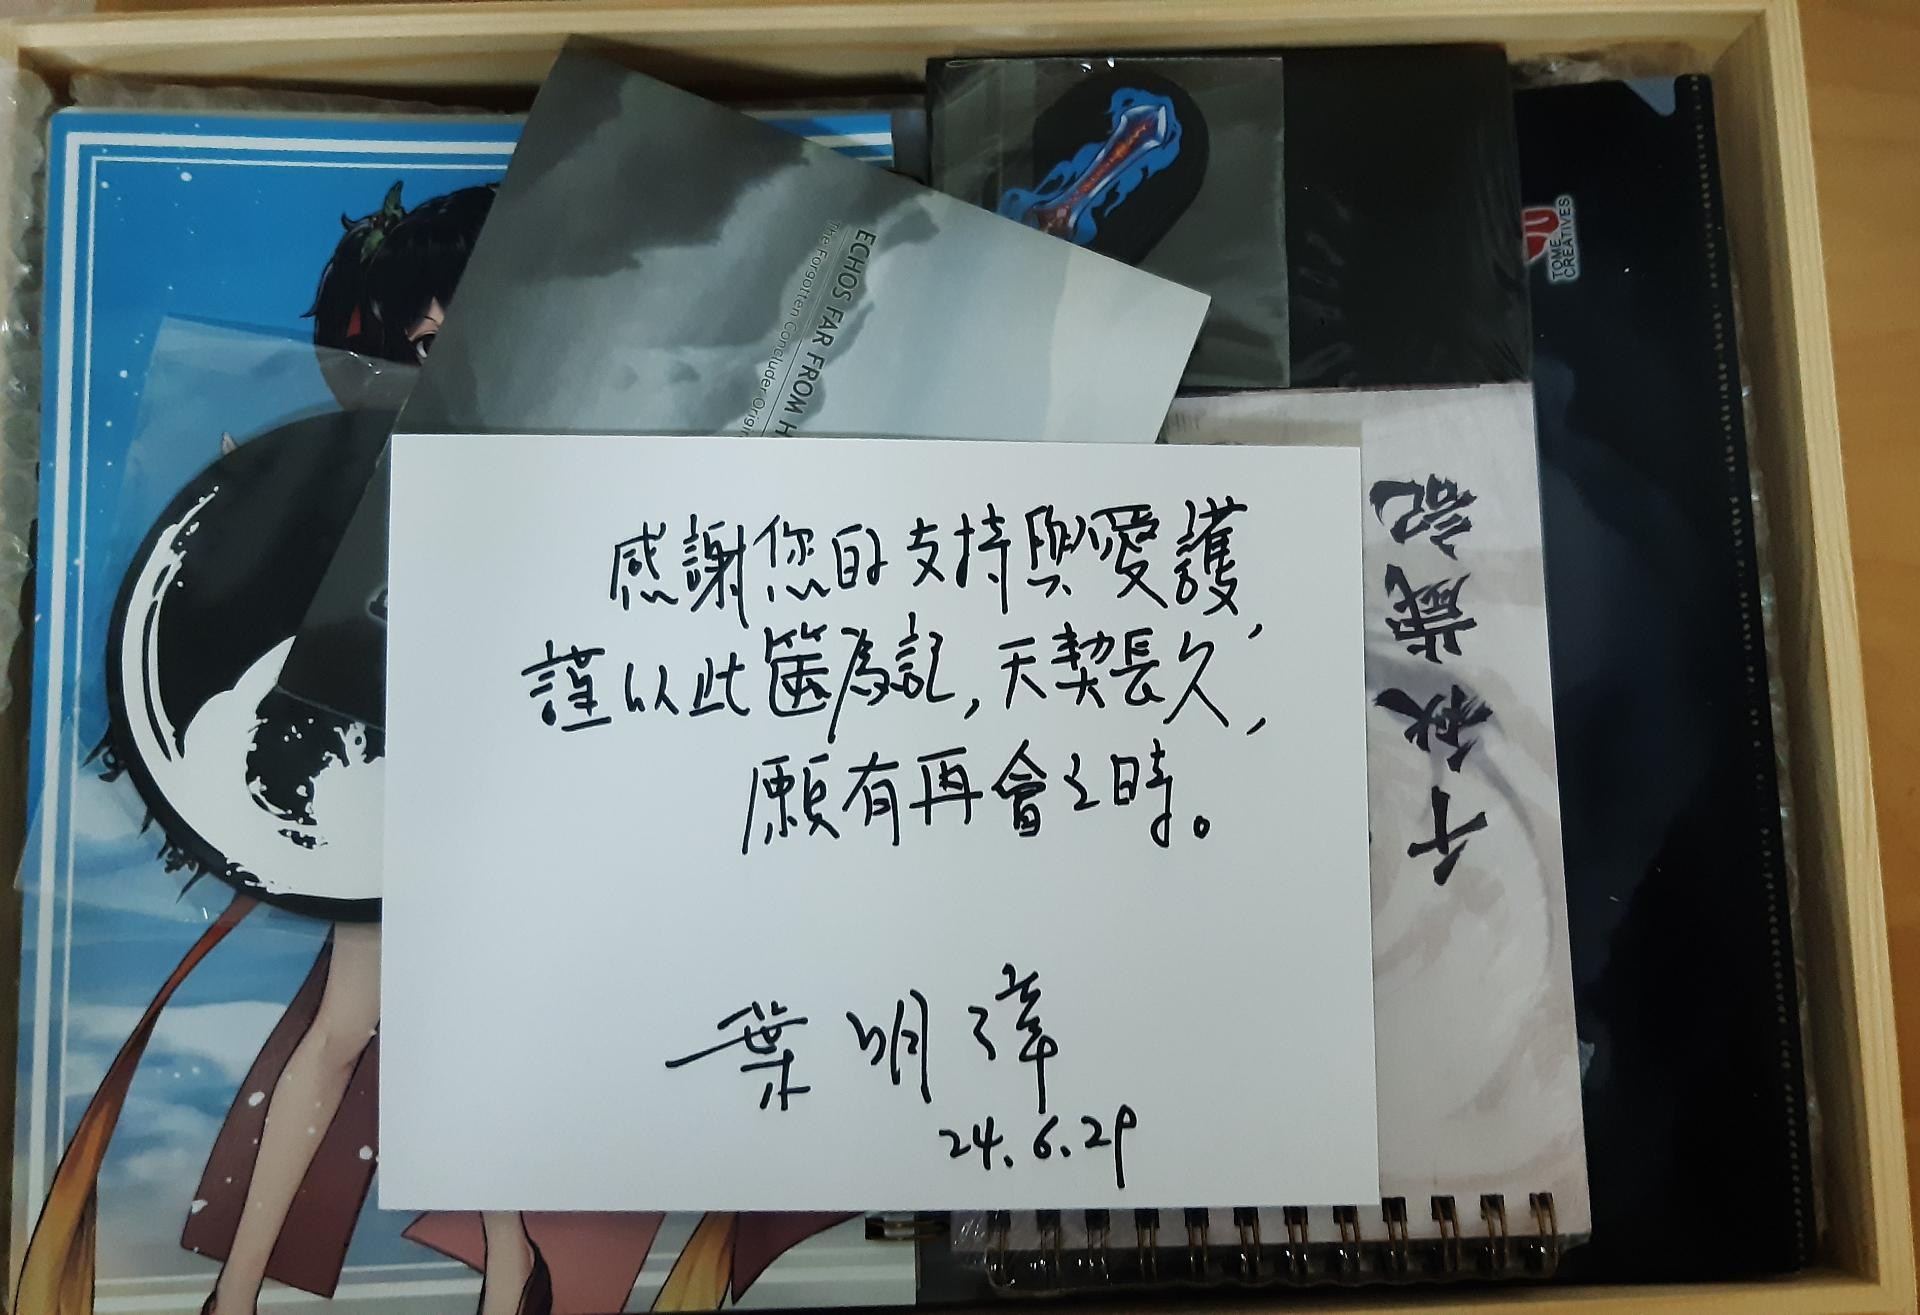 感謝您的支持與愛護,
謹以此箋為記,天契長久,
願有再會之時。
葉明璋
24.6.29
ECHOS FAR FROM H
The Forgotten Concluder Origin
TOME
CREATIVES
千秋歲記